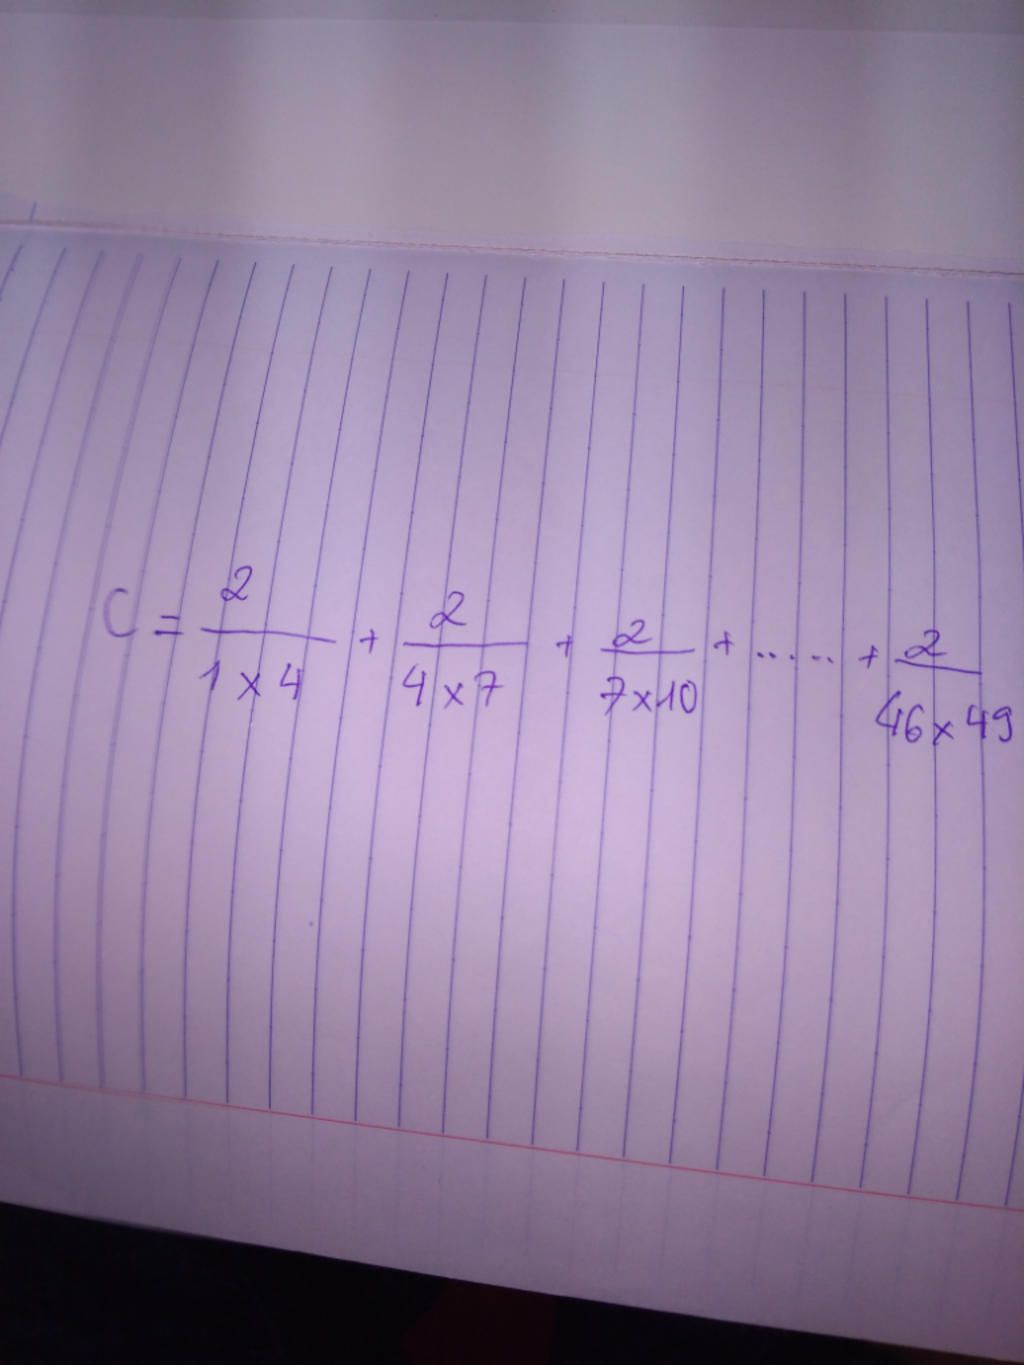 C = 2/(1 x 4) + 2/(4 x 7) + 2/(7 x 10) + ..... + 2/(46 x 49)